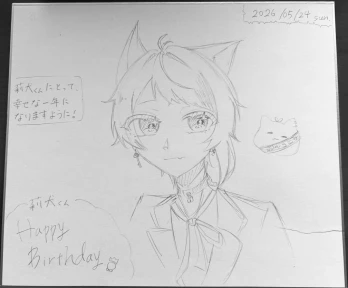 2026/05/24 sun.
莉犬くんにとって、
幸せな一年に
なりますように♪
莉犬くん
Happy
Birthday